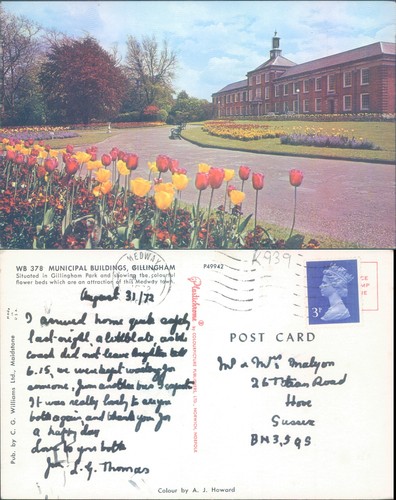 WB 378 MUNICIPAL BUILDINGS, GILLINGHAM
Situated in Gillingham Park and showing the colourful
flower beds which are an attraction of this Medway town.
P49942
K939
MEDWAY
August 31, /72
I arrived home quite safely
last night, a little late, as the
coach did not leave Brighton till
6.15, as we were kept waiting for
someone, from another bus I expect
It was really lovely to see you
both again and thank you for
a happy day.
Love to you both
L. G. Thomas
Pub. by C. G. Williams Ltd., Maidstone
Plastichrome
POST CARD
3P
Mr & Mrs Malyon
Road
Hove
Sussex
BN3, 5QS
Colour by A. J. Howard